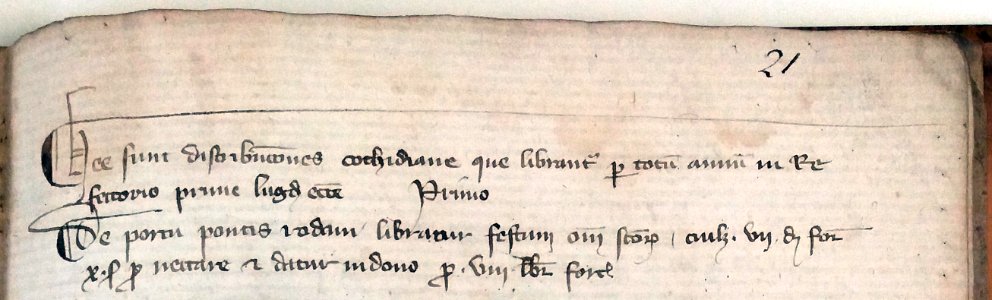 21
Hee sunt distribucones cothidiane que librant᷑ ꝑ totū annū in Re
fectorio prime lugd eccē Primo
De portu pontis rodani libratur festum oīm scōꝝ vii d for
x s ꝓ nectare ⁊ datur in dono ꝓ viii lbr fort